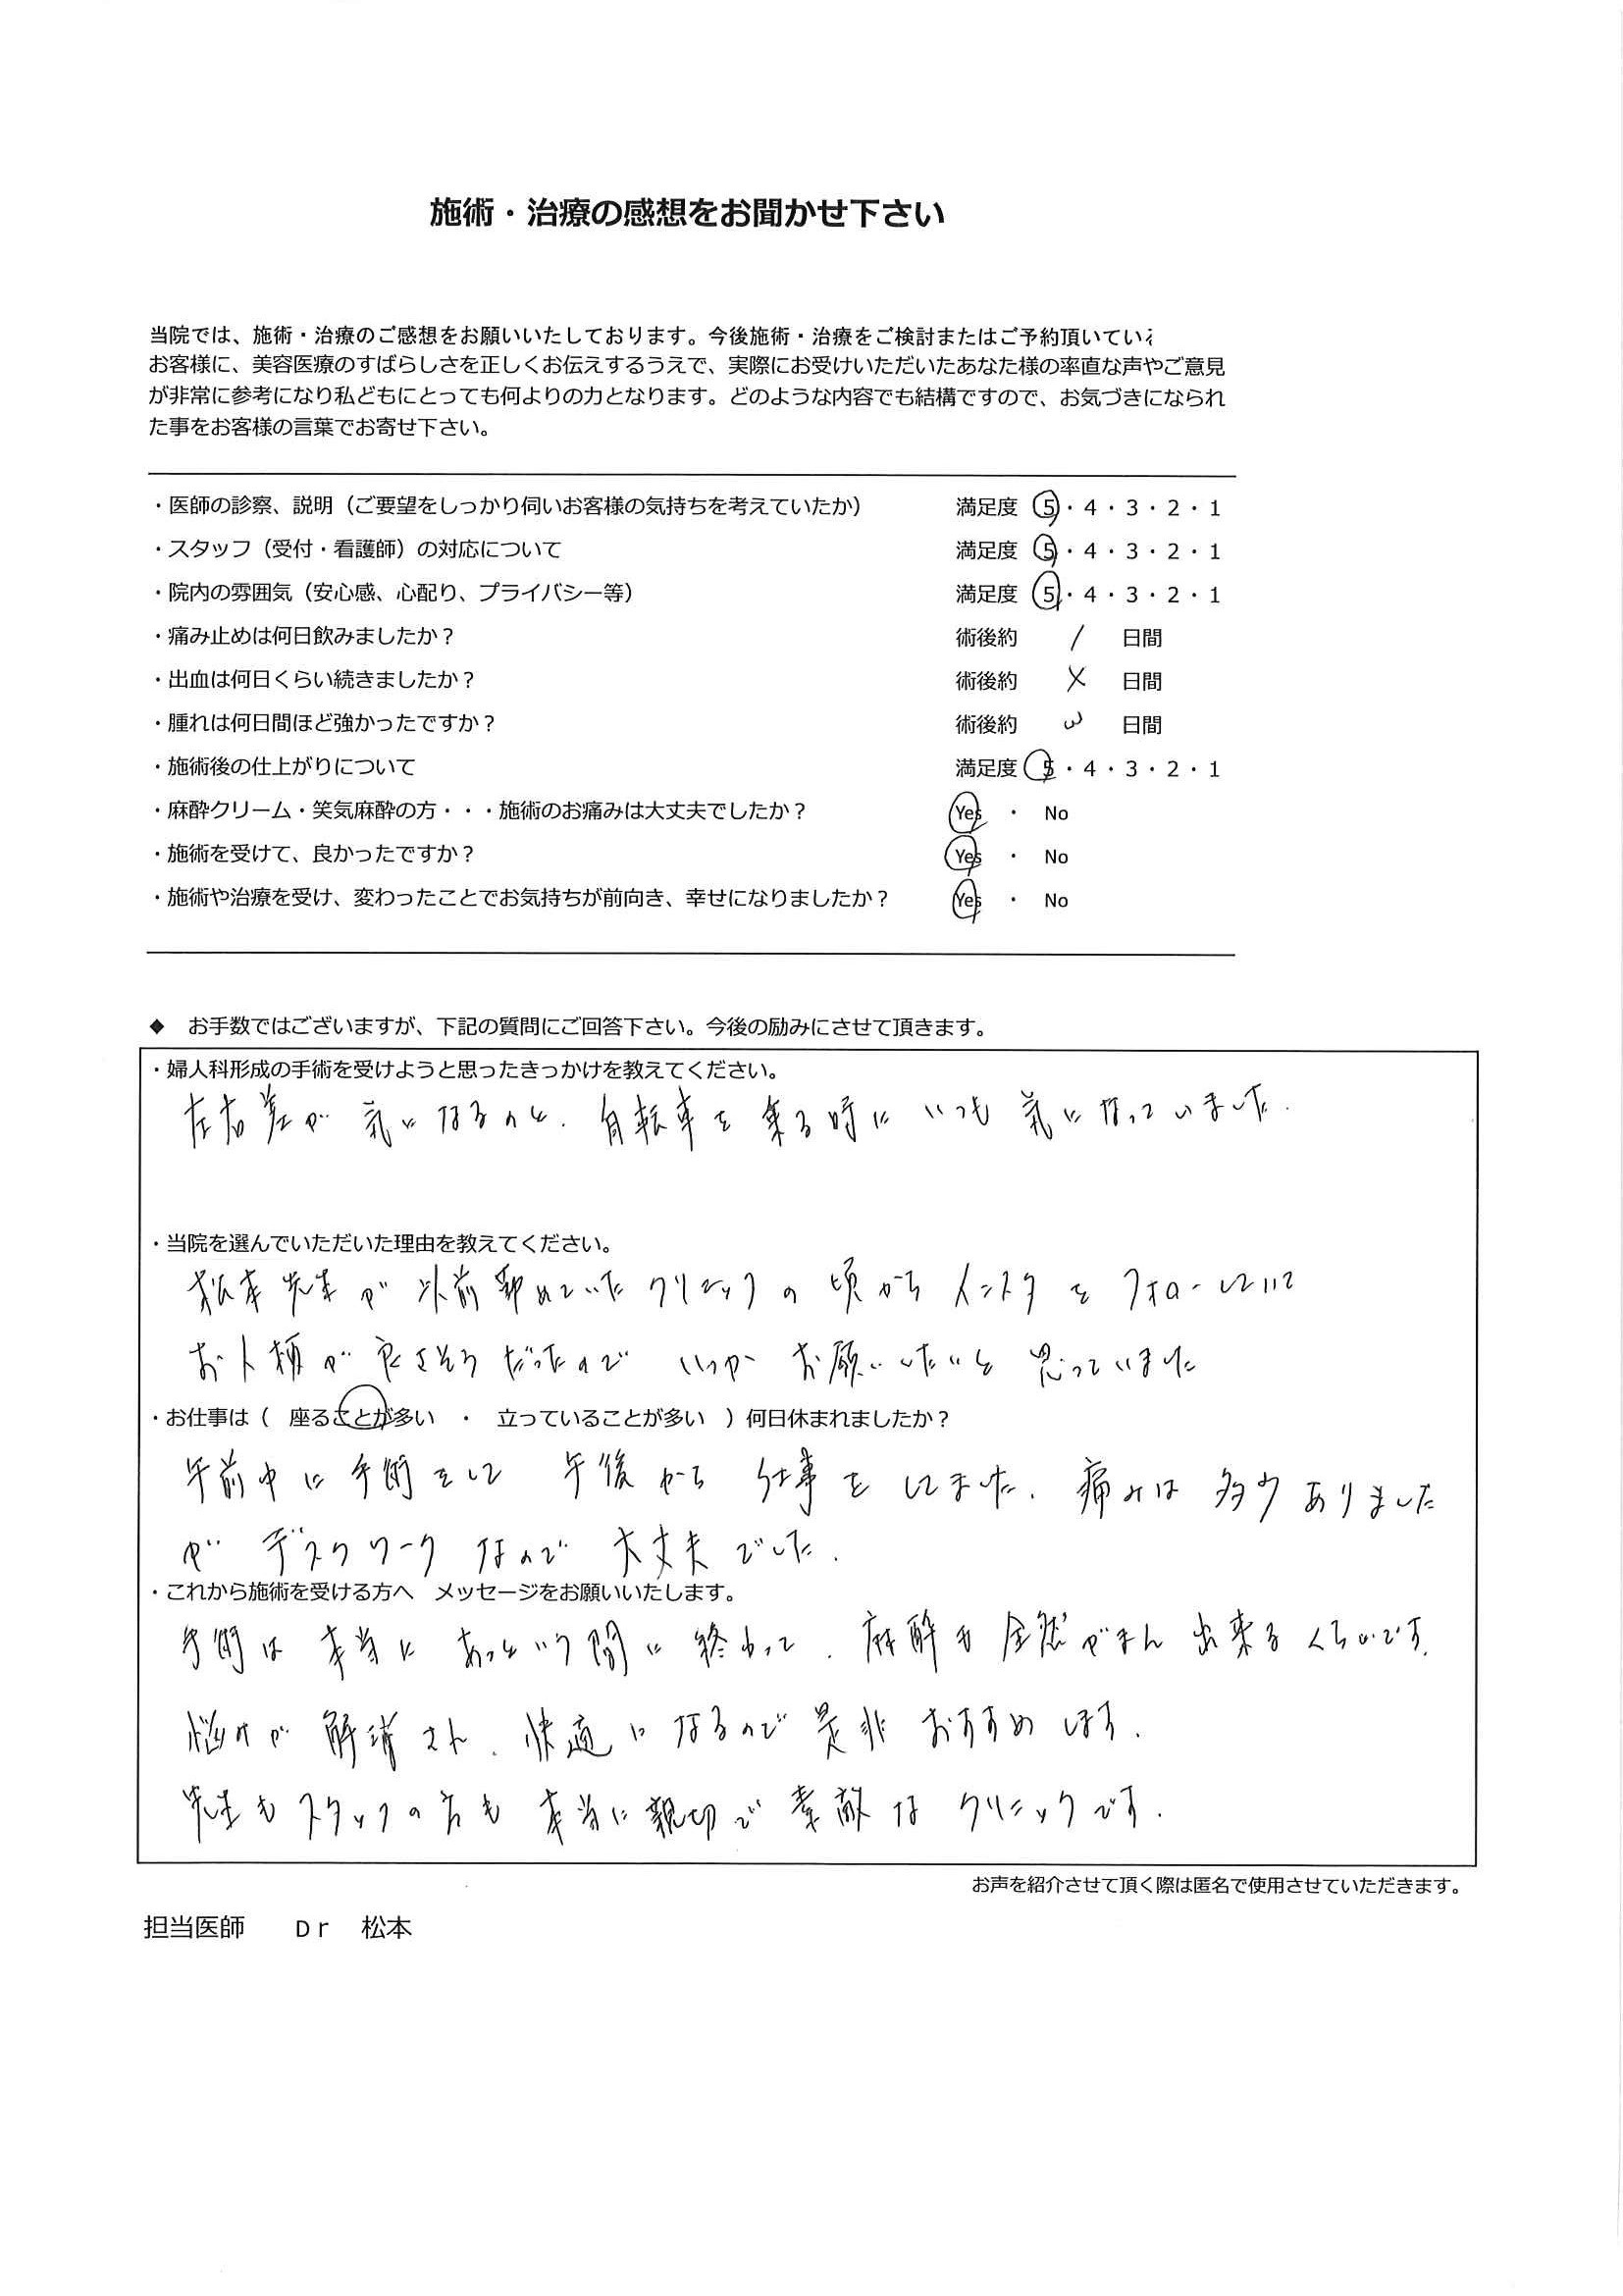 施術・治療の感想をお聞かせ下さい
当院では、施術・治療のご感想をお願いいたしております。今後施術・治療をご検討またはご予約頂いてい
お客様に、美容医療のすばらしさを正しくお伝えするうえで、実際にお受けいただいたあなた様の率直な声やご意見
が非常に参考になり私どもにとっても何よりの力となります。どのような内容でも結構ですので、お気づきになられ
た事をお客様の言葉でお寄せ下さい。
・医師の診察、説明（ご要望をしっかり伺いお客様の気持ちを考えていたか） 満足度 5・4・3・2・1
・スタッフ（受付・看護師）の対応について 満足度 5・4・3・2・1
・院内の雰囲気（安心感、心配り、プライバシー等） 満足度 5・4・3・2・1
・痛み止めは何日飲みましたか？ 術後約 / 日間
・出血は何日くらい続きましたか？ 術後約 × 日間
・腫れは何日間ほど強かったですか？ 術後約 3 日間
・施術後の仕上がりについて 満足度 5・4・3・2・1
・麻酔クリーム・笑気麻酔の方・・・施術のお痛みは大丈夫でしたか？ Yes ・ No
・施術を受けて、良かったですか？ Yes ・ No
・施術や治療を受け、変わったことでお気持ちが前向き、幸せになりましたか？ Yes ・ No
◆ お手数ではございますが、下記の質問にご回答下さい。今後の励みにさせて頂きます。
・婦人科形成の手術を受けようと思ったきっかけを教えてください。
左右差が気になるのと、自転車を乗る時にいつも気になっていました.
・当院を選んでいただいた理由を教えてください。
松本先生が以前勤めていたクリニックの頃からインスタをフォローしていて
お人柄が良さそうだったのでいつかお願いしたいと思っていました
・お仕事は（ 座ることが多い ・ 立っていることが多い ）何日休まれましたか？
午前中に手術をして 午後から仕事をしてました. 痛みは多少ありました
が デスクワークなので大丈夫でした.
・これから施術を受ける方へ メッセージをお願いいたします。
手術は本当にあっという間に終わって、麻酔も全然がまん出来るくらいです.
悩みが解消され、快適になるので是非おすすめします.
先生もスタッフの方も本当に親切で素敵なクリニックです.
お声を紹介させて頂く際は匿名で使用させていただきます。
担当医師 Dr 松本